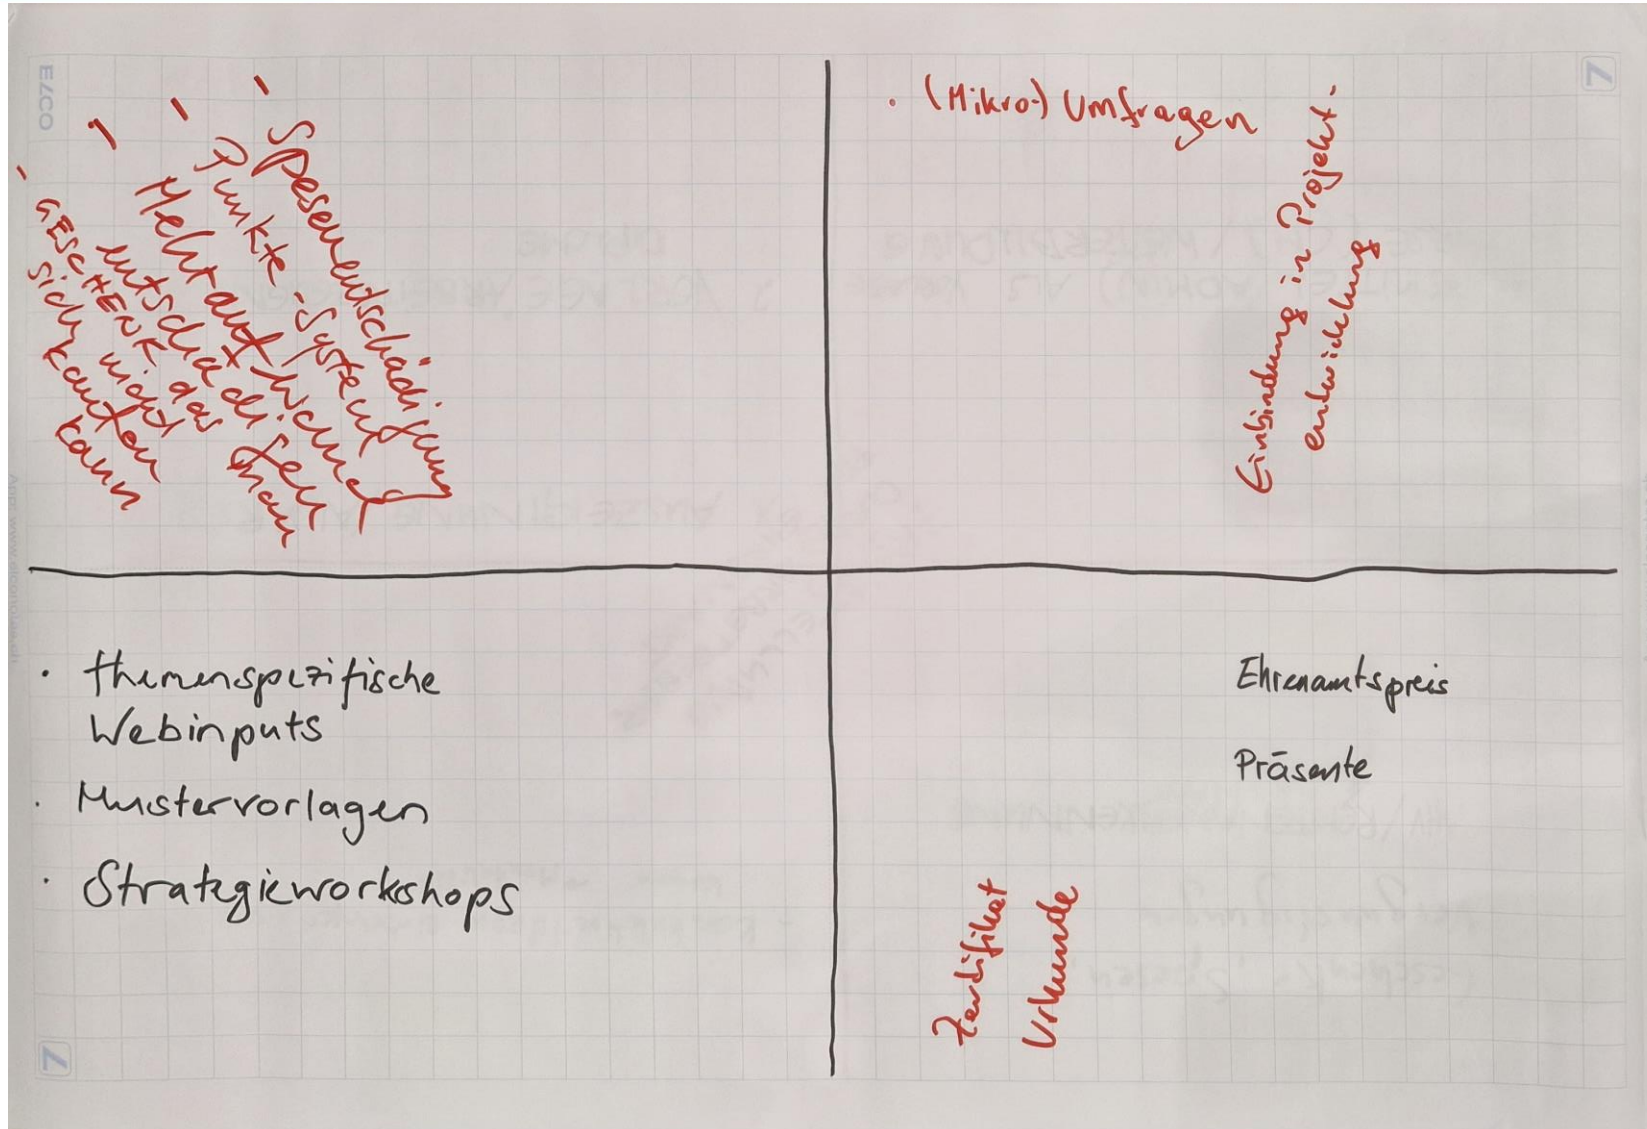 - Spesenentschädigung
- Punkte-System
- Mehraufwand
entschädigen
- GESCHENK das man
sich nicht
kaufen
kann
. (Mikro-) Umfragen
Einbindung in Projekt-
entwicklung
. themenspezifische
Webinputs
. Mustervorlagen
. Strategieworkshops
Ehrenamtspreis
Präsente
Zertifikat
Urkunde